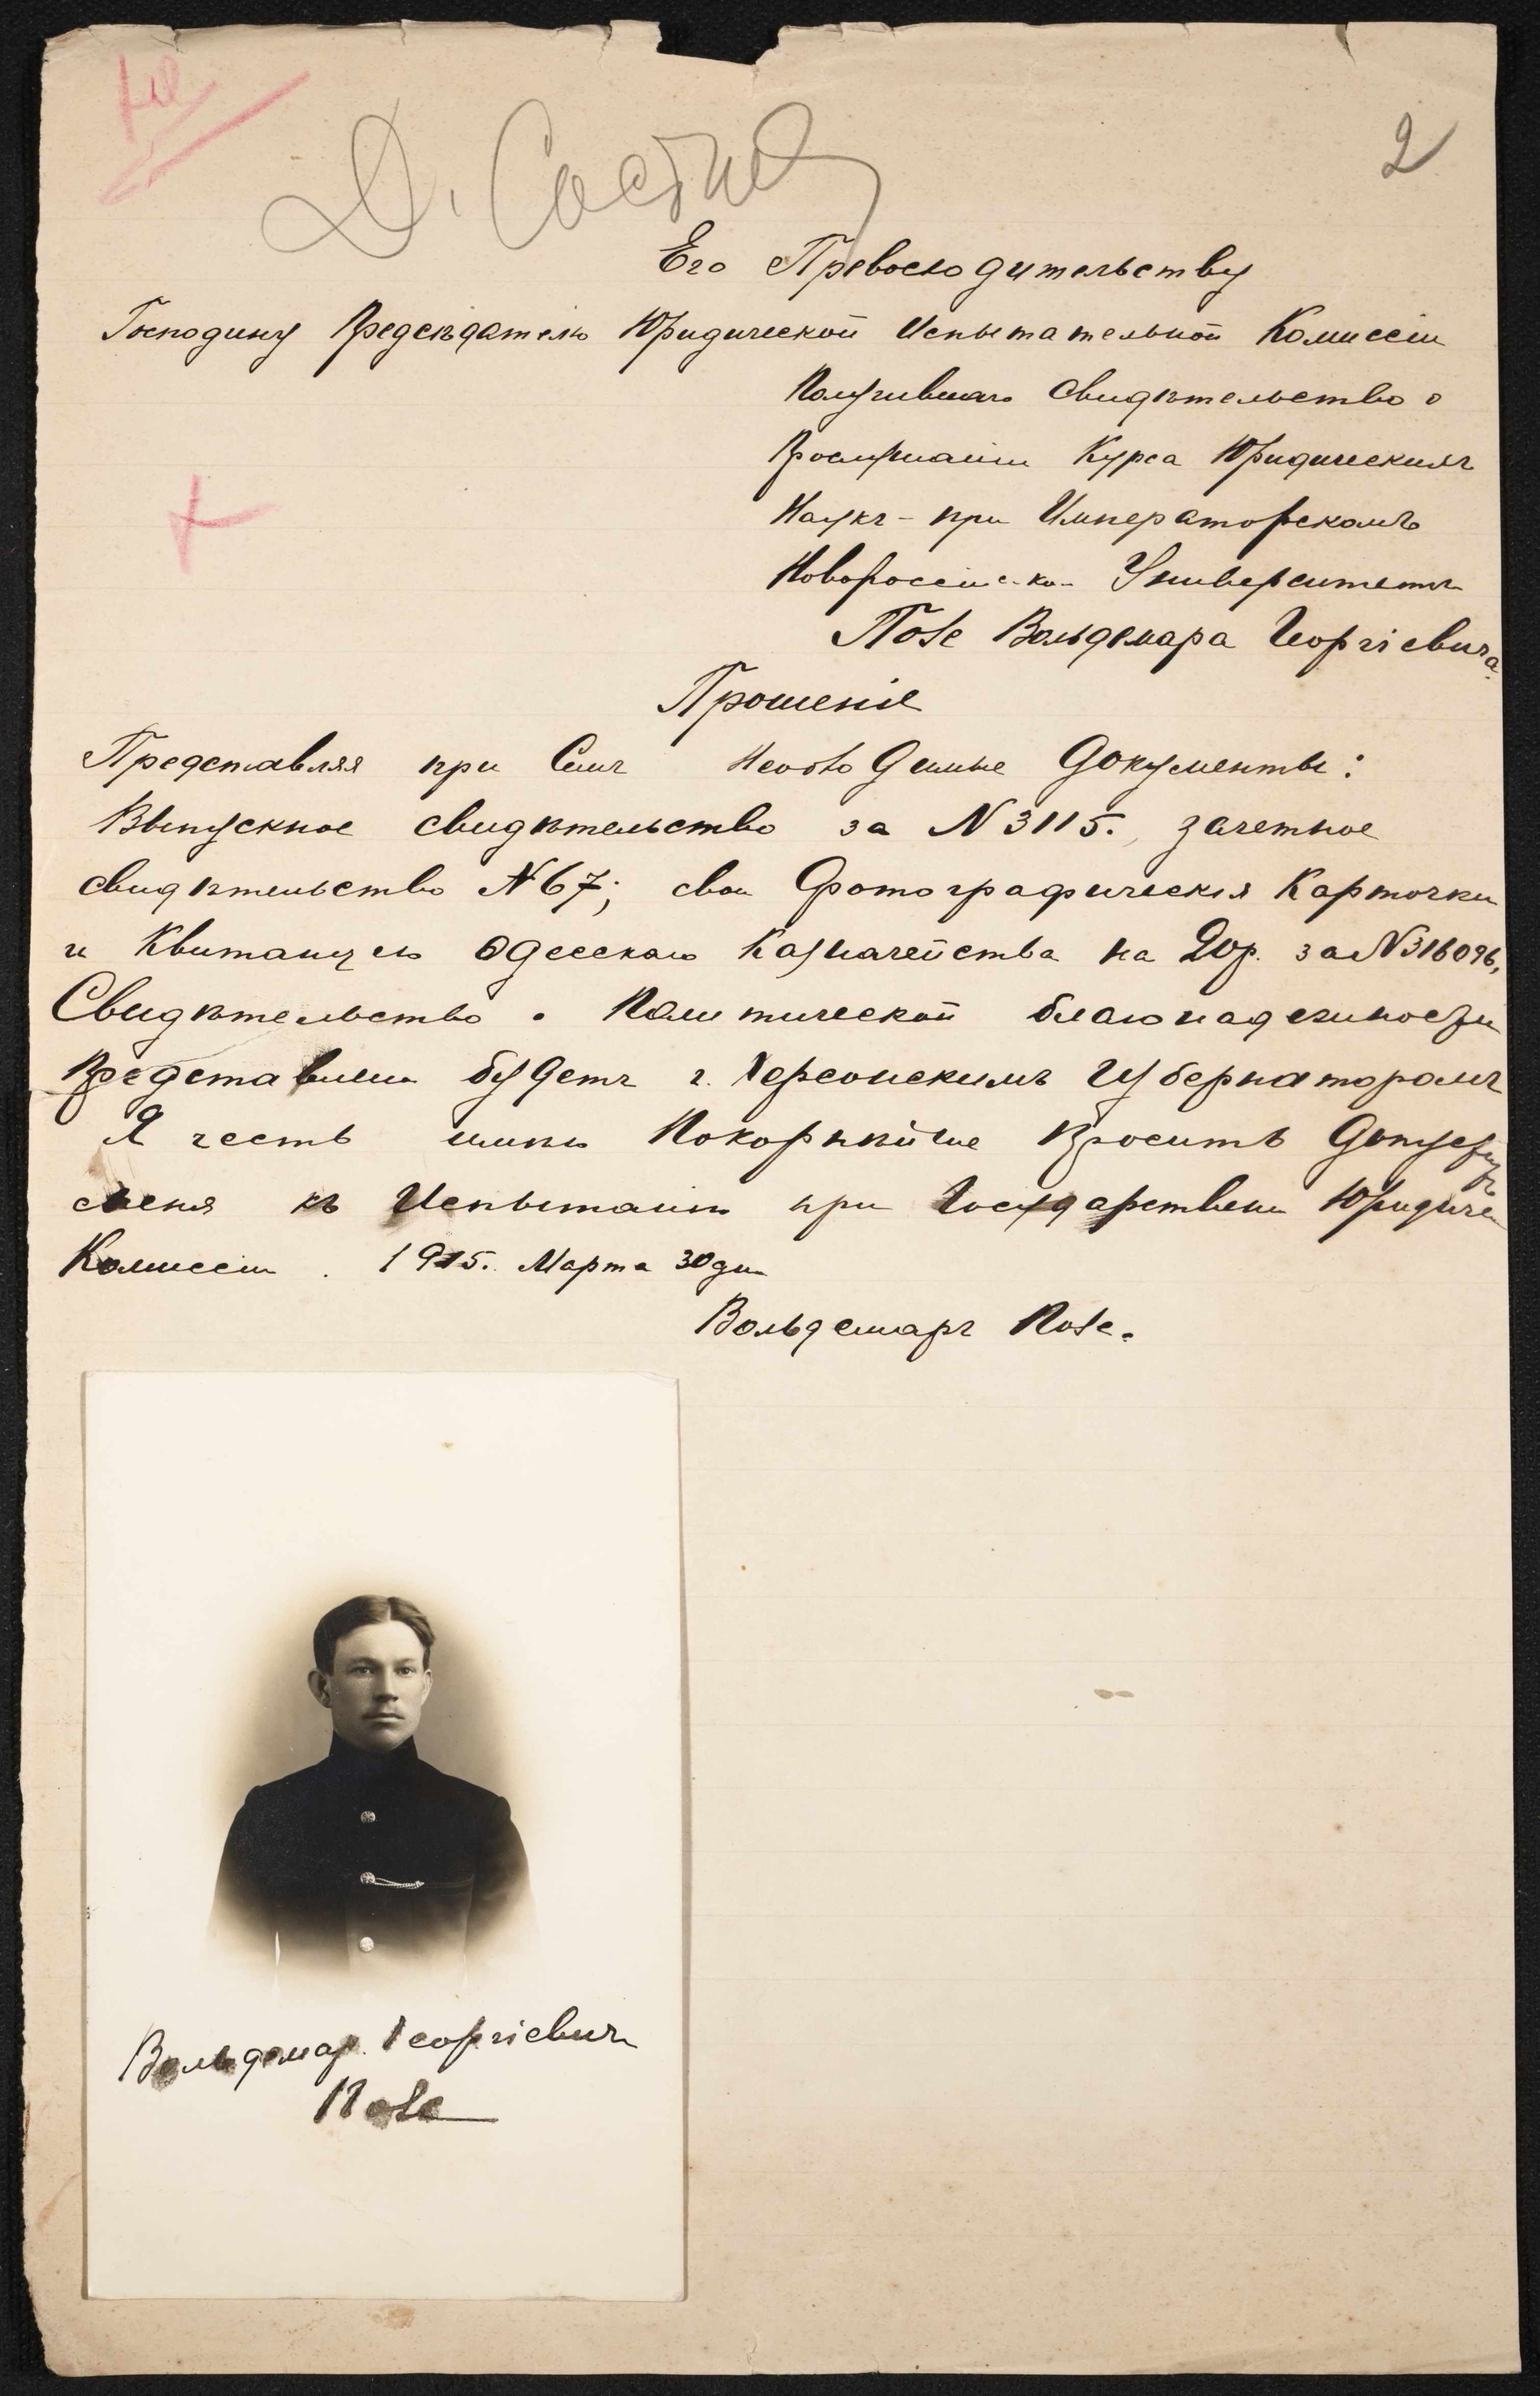 2
Его Превосходительству
Господину Председателю Юридической Испытательной Комиссіи
Получившаго свидѣтельство о
Прослушаніи Курса Юридическихъ
Наукъ - при Императорскомъ
Новороссійско- Университетѣ
Позе Вольдемара Георгіевича
Прошеніе
Представляя при Семъ Необходимые Документы:
Выпускное свидѣтельство за N 3115., зачетное
свидѣтельство N 67; свои Фотографическія Карточки
и Квитанцію Одесскаго Казначейства на 20р. за N 316096,
Свидѣтельство о Политической благонадежности
представлено будетъ г. Херсонскимъ Губернаторомъ
Я честь имѣю Покорнѣйше Просить Допустить
меня къ Испытанію при Государственн Юридиче
Комиссіи. 1915. Марта 30 дня
Вольдемаръ Позе.
Вольдемар. Георгіевичъ
Позе